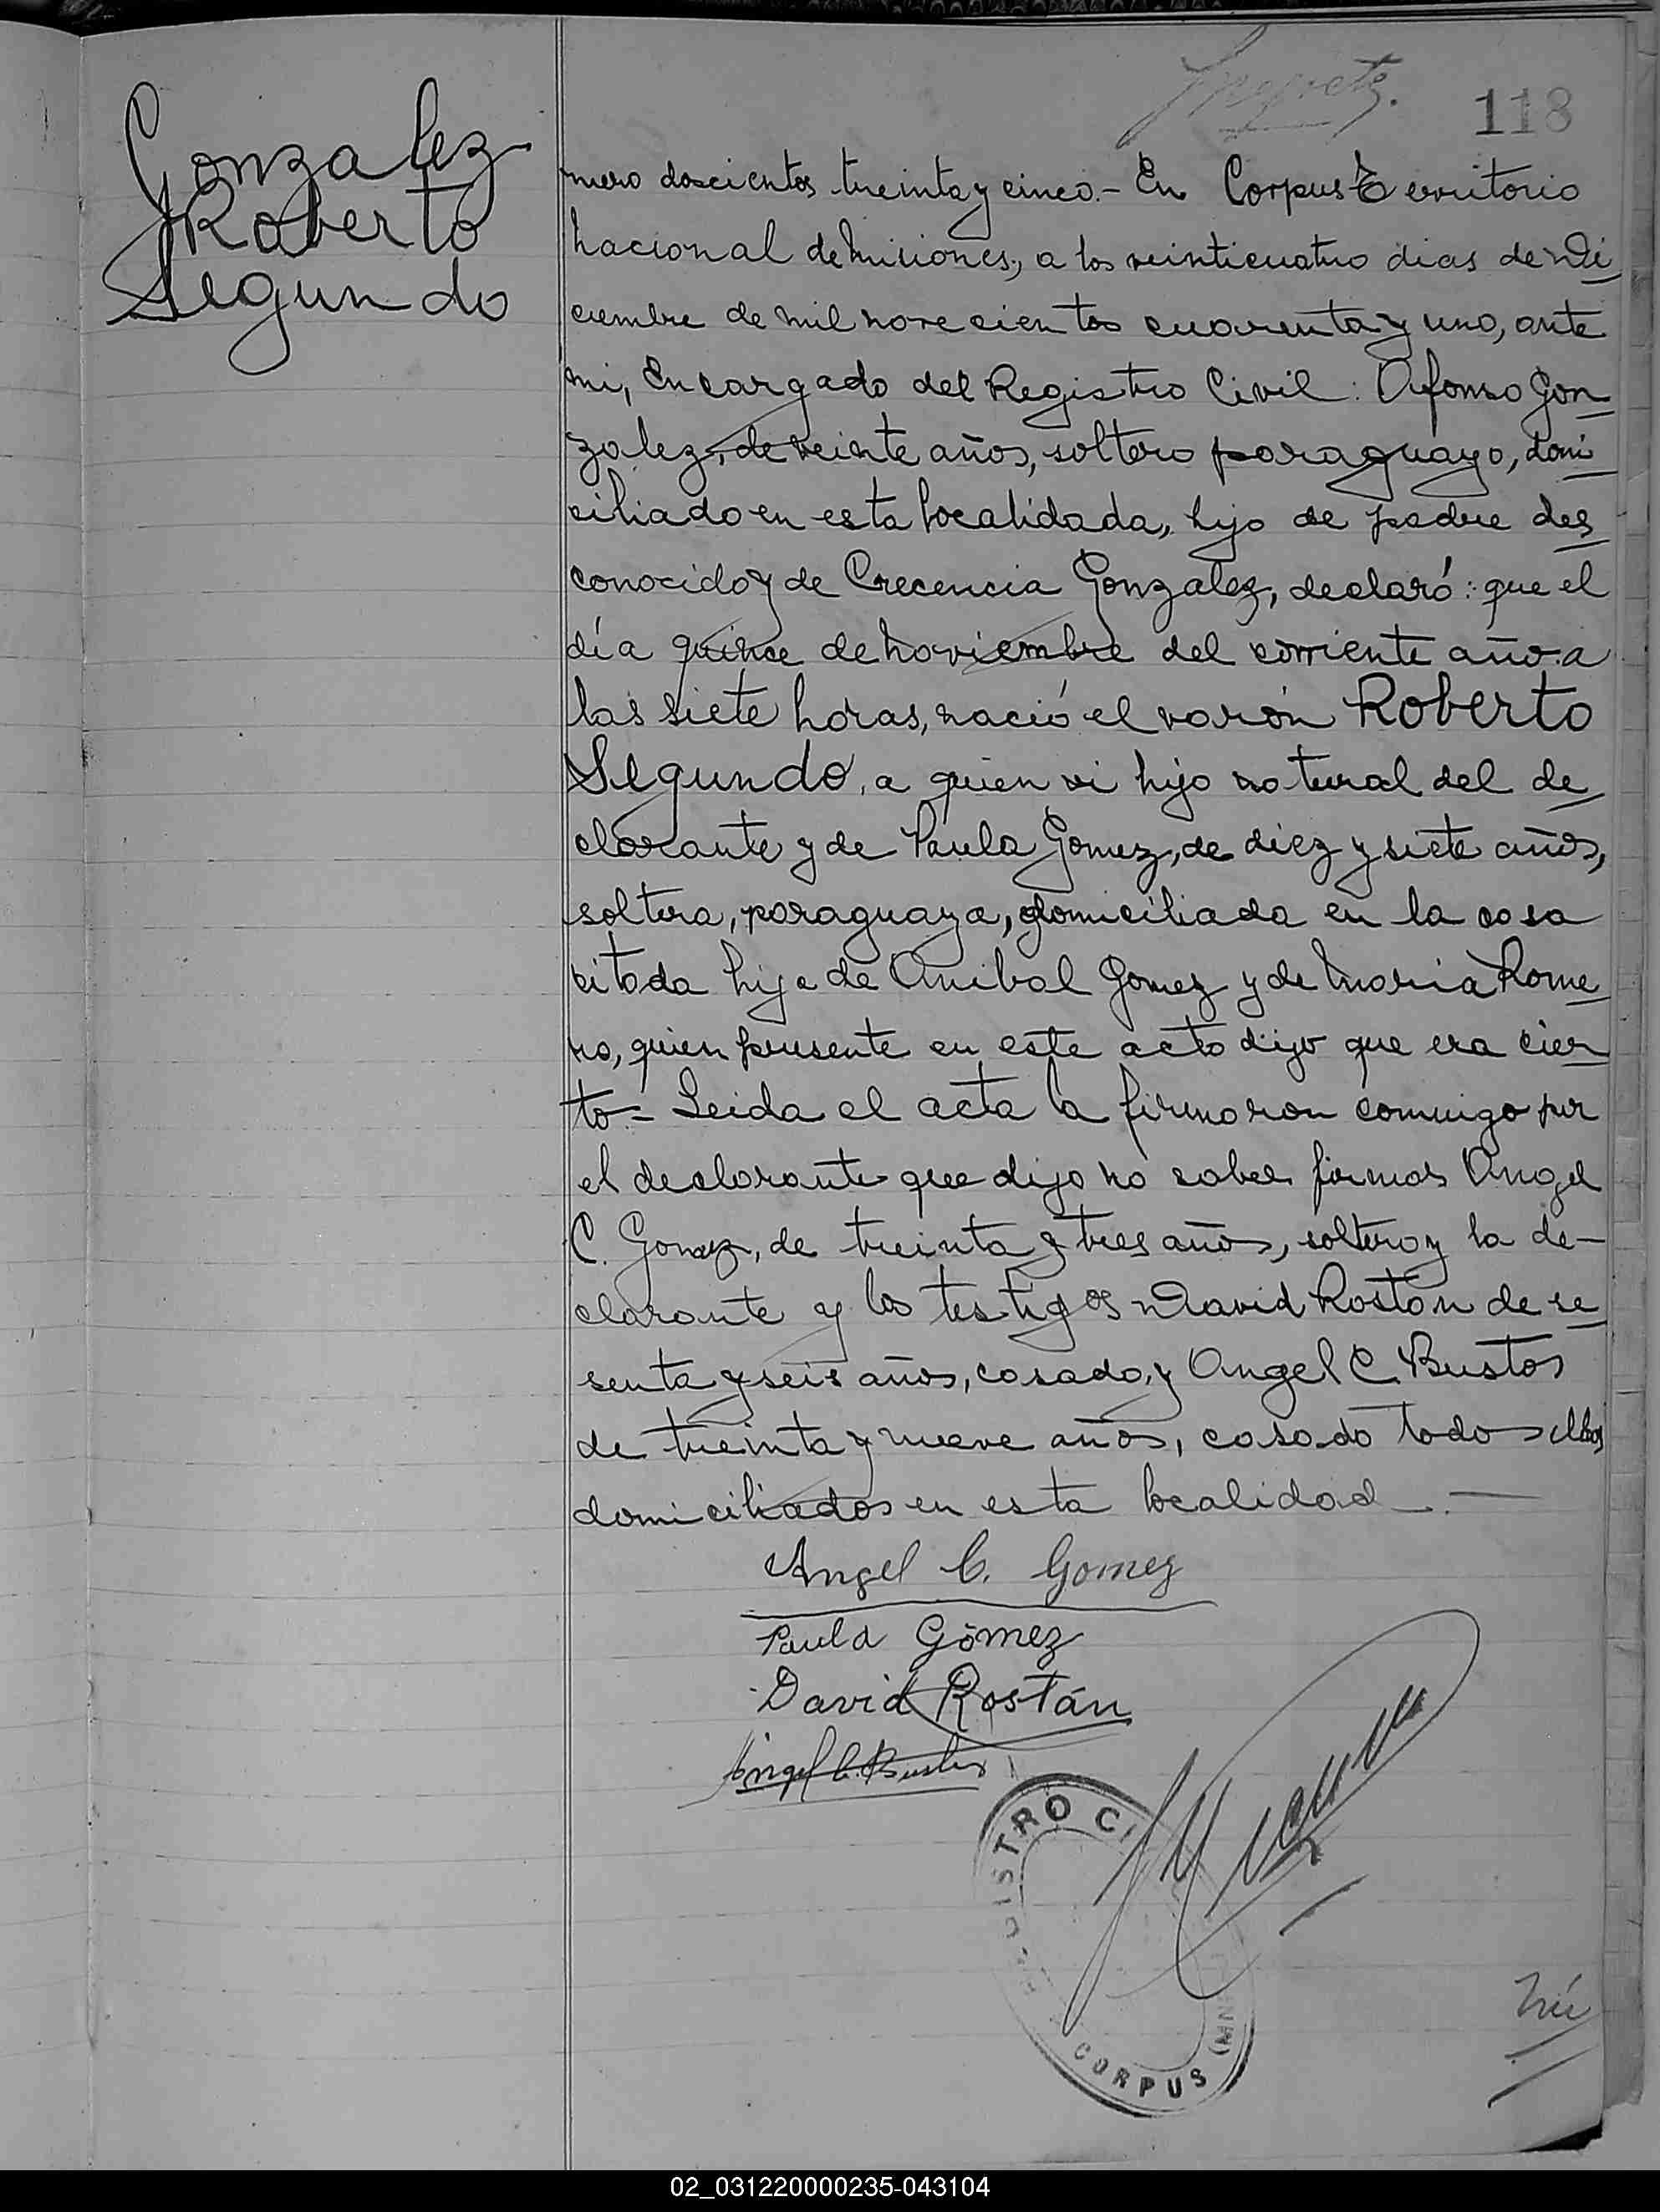 118
Gonzalez
Roberto
Segundo
mero doscientos treinta y cinco.- En Corpus Territorio
nacional de Misiones, a los veinticuatro dias de Di
ciembre de mil novecientos cuarenta y uno, ante
mi, Encargado del Registro Civil: Alfonso Gon
zalez, de veinte años, soltero paraguayo, domi
ciliado en esta localidada, hijo de padre des
conocido y de Crecencia Gonzalez, declaró: que el
día quince de noviembre del corriente año a
las siete horas, nació el varón Roberto
Segundo, a quien vi hijo natural del de
clarante y de Paula Gomez, de diez y siete años,
soltera, paraguaya, domiciliada en la casa
citada hija de Anibal Gomez y de Maria Rome
ro, quien presente en este acto dijo que era cier
to- Leida el acta la firmaron conmigo por
el declarante que dijo no saber firmar Angel
C. Gomez, de treinta y tres años, soltero y la de-
clarante y los testigos David Rostán de se
senta y seis años, casado, y Angel C. Bustos
de treinta y nueve años, casado todos ellos
domiciliados en esta localidad.-
Angel C. Gomez
Paula Gómez
David Rostán
Angel C. Bustos
ISTRO CI
CORPUS (MN
Nú
02_031220000235-043104